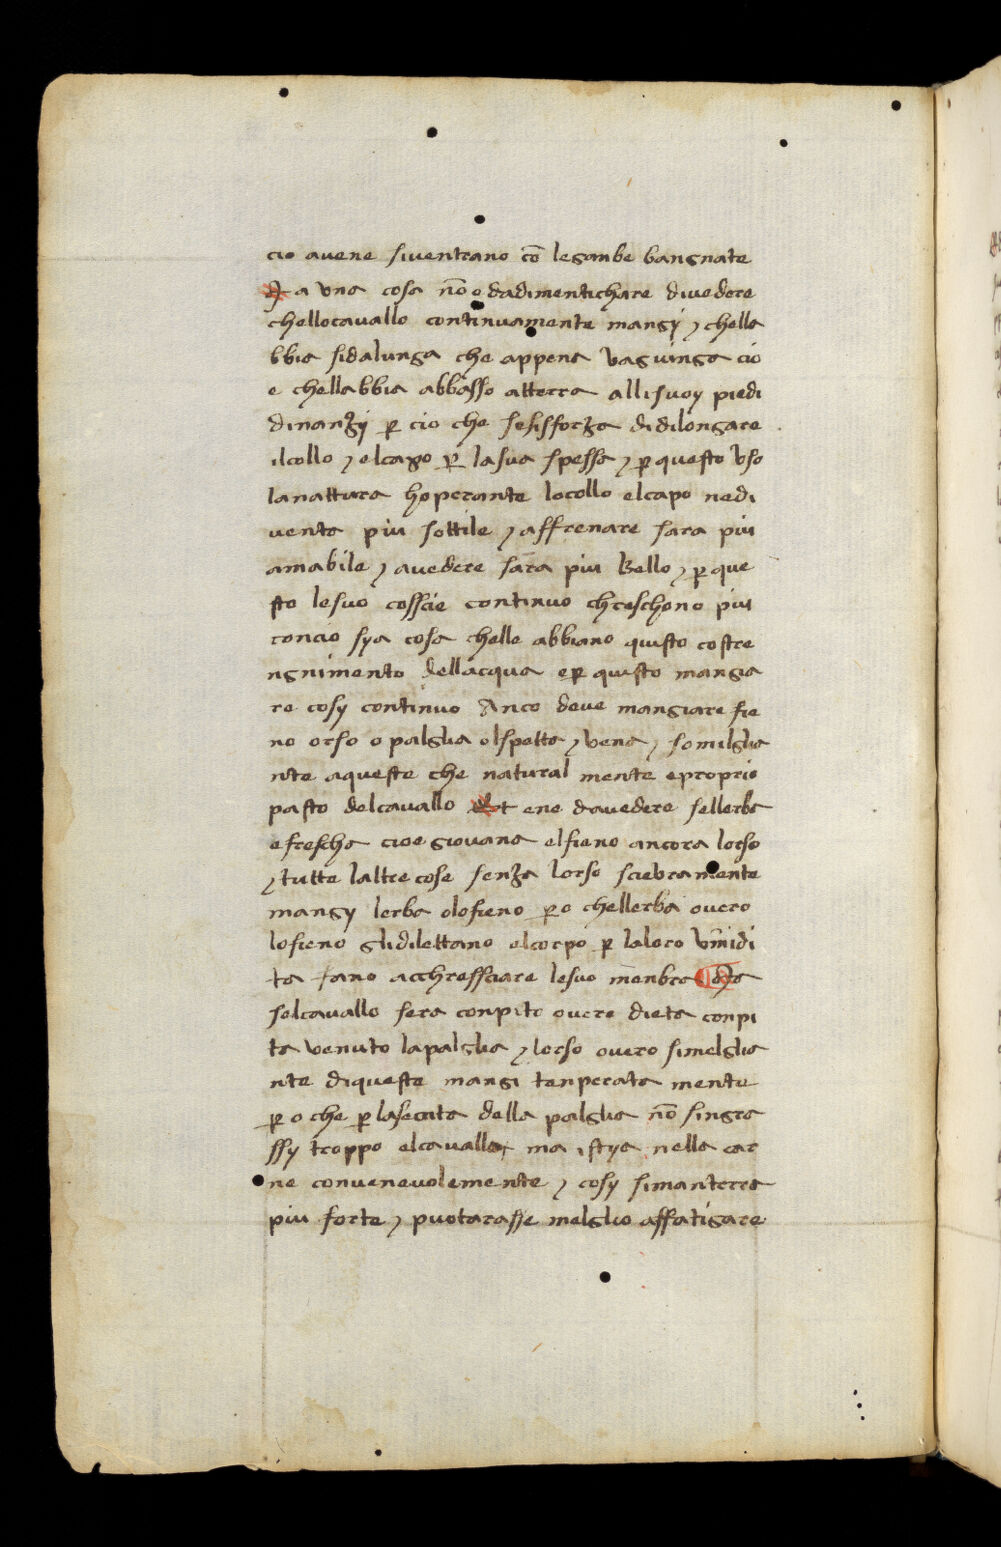 cio avene siventrano cō legambe bangnate
Et a una cosa nō o dadimentichare divedere
chellocavallo continuamente mangÿ ⁊ chella
bbia sidalunga che appena vaguinga cio
e chellabbia abbasso atterra allisuoy piedi
dinanzÿ ꝑ cio che sesisforza didilongare
ilcollo ⁊ elcapo ꝑ lasua spessa ⁊ ꝑ questo uso
lanattura hoperante locollo elcapo nedi
venta piu sottile ⁊ affrenare sara piu
amabile ⁊ avedere sara piu bello ⁊ ꝑ que
sto lesuo cosscie continuo chreschono piu
concio sya cosa chelle abbiano quisto costre
ngnimento dellacqua eꝑ quisto mangia
re cosy continuo Anco deve mangiare fie
no orso o palglia olspetta ⁊ vena ⁊ somilglia
nte aqueste che natural mente eproprio
pasto delcavallo Et ene davedere sellerba
efrescha cioe giovana elfieno ancora lorso
⁊ tutte laltre cose senza lorso sciebramente
mangy lerba olofieno ꝑ o chellerba overo
lofieno glidilettano elcorpo ꝑ laloro vmidi
ta fano acchressciare lesuo menbra Ma
selcavallo sera conpito overo dieta conpi
ta venuto lapalglia ⁊ lorso overo simelglia
nte diqueste mangi tenperata mente
ꝑ o che ꝑ lasecita della palglia nō singra
ssy troppo elcavallo ma istya nella car
ne convenevolemente ⁊ cosy simanterra
piu forte ⁊ puotarasse melglio affatigare